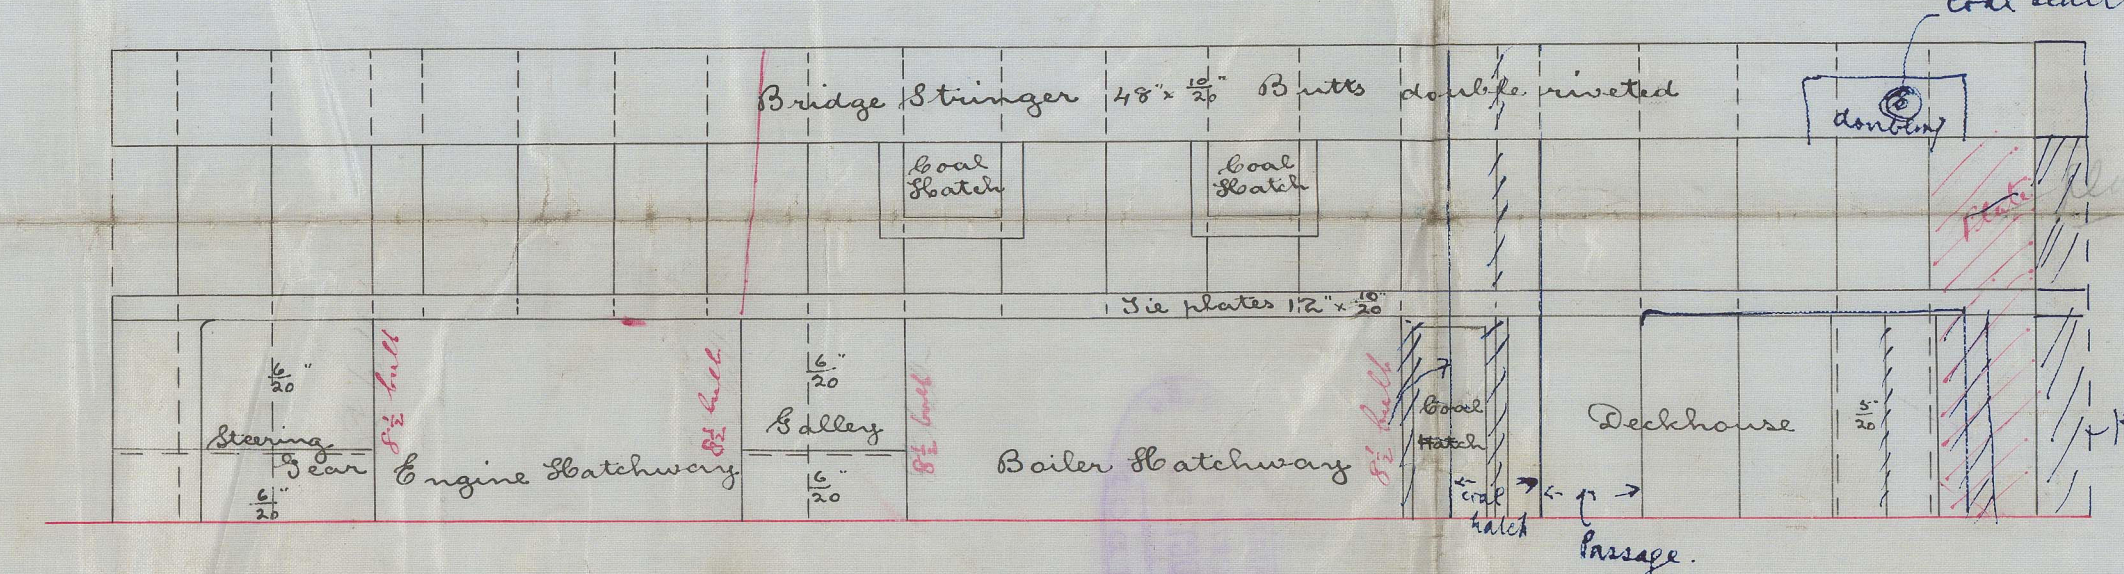 Coal
Bridge Stringer 48" x 10/20" Butts double riveted
doubling
Coal
Hatch
Coal
Hatch
Plate
Tie plates 12" x 10/20"
6/20"
Steering
Gear
6/20"
8½ bulb
Engine Hatchway
8½ bulb
6/20"
Galley
6/20"
8½ bulb
Boiler Hatchway
8½ bulb
Coal
Hatch
coal
hatch
Passage.
Deckhouse
5/20"